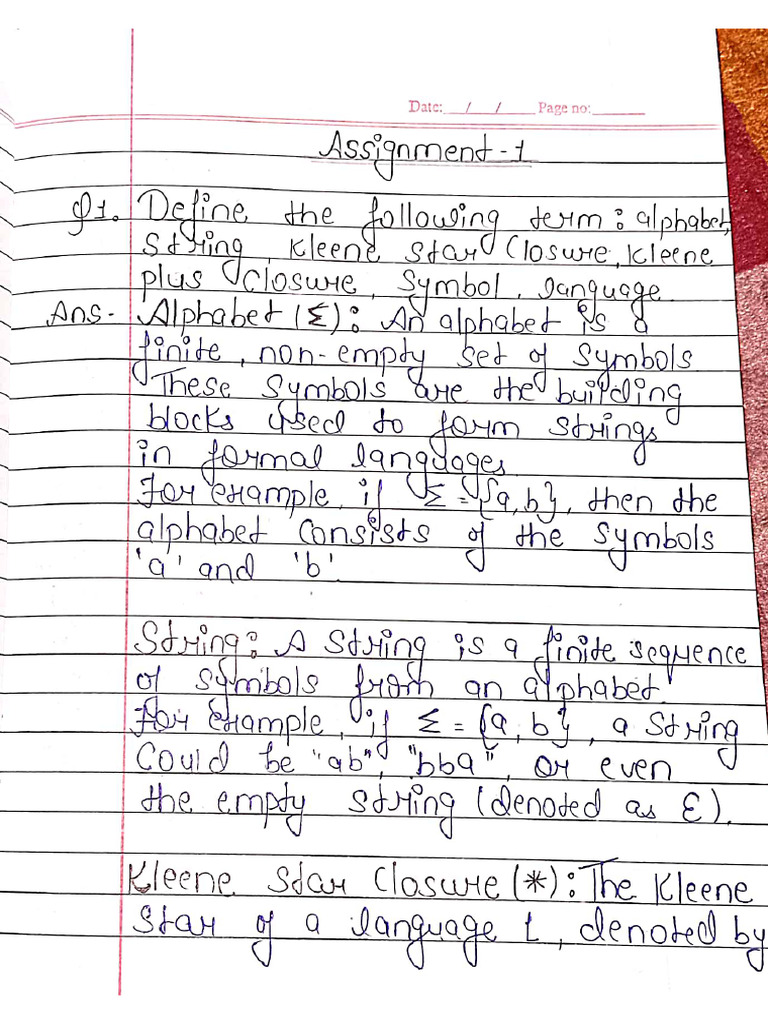 Date: / / Page no:
Assignment-1
Q1. Define the following term: alphabet,
String, Kleene Star Closure, Kleene
plus Closure, Symbol, language
Ans- Alphabet (Σ): An alphabet is a
finite, non-empty set of Symbols
These Symbols are the building
blocks used to form strings
in formal languages.
For example, if Σ = {a, b}, then the
alphabet Consists of the Symbols
'a' and 'b'.
String: A String is a finite sequence
of symbols from an alphabet.
For Example, if Σ = {a, b}, a String
Could be "ab", "bba", or even
the empty string (denoted as Ɛ).
Kleene Star Closure (*): The Kleene
Star of a language L, denoted by